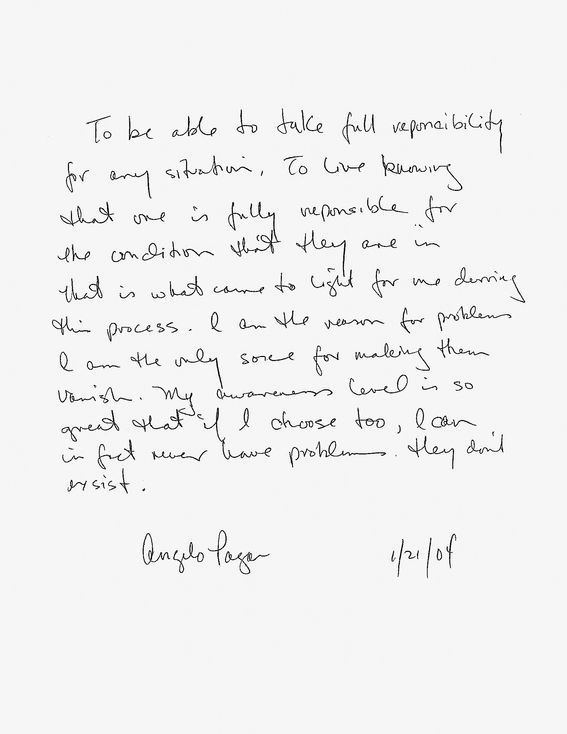 To be able to take full reponcibility
for any situation. To live knowing
that one is fully reponsible for
the condition that they are "in
that is what came to light for me durring
this process. I am the reason for problems
I am the only sorce for making them
vanish. My awareness level is so
great that if I choose too, I can
in fact never have problems. they don't
exsist.
Angelo Pagan 1/21/04